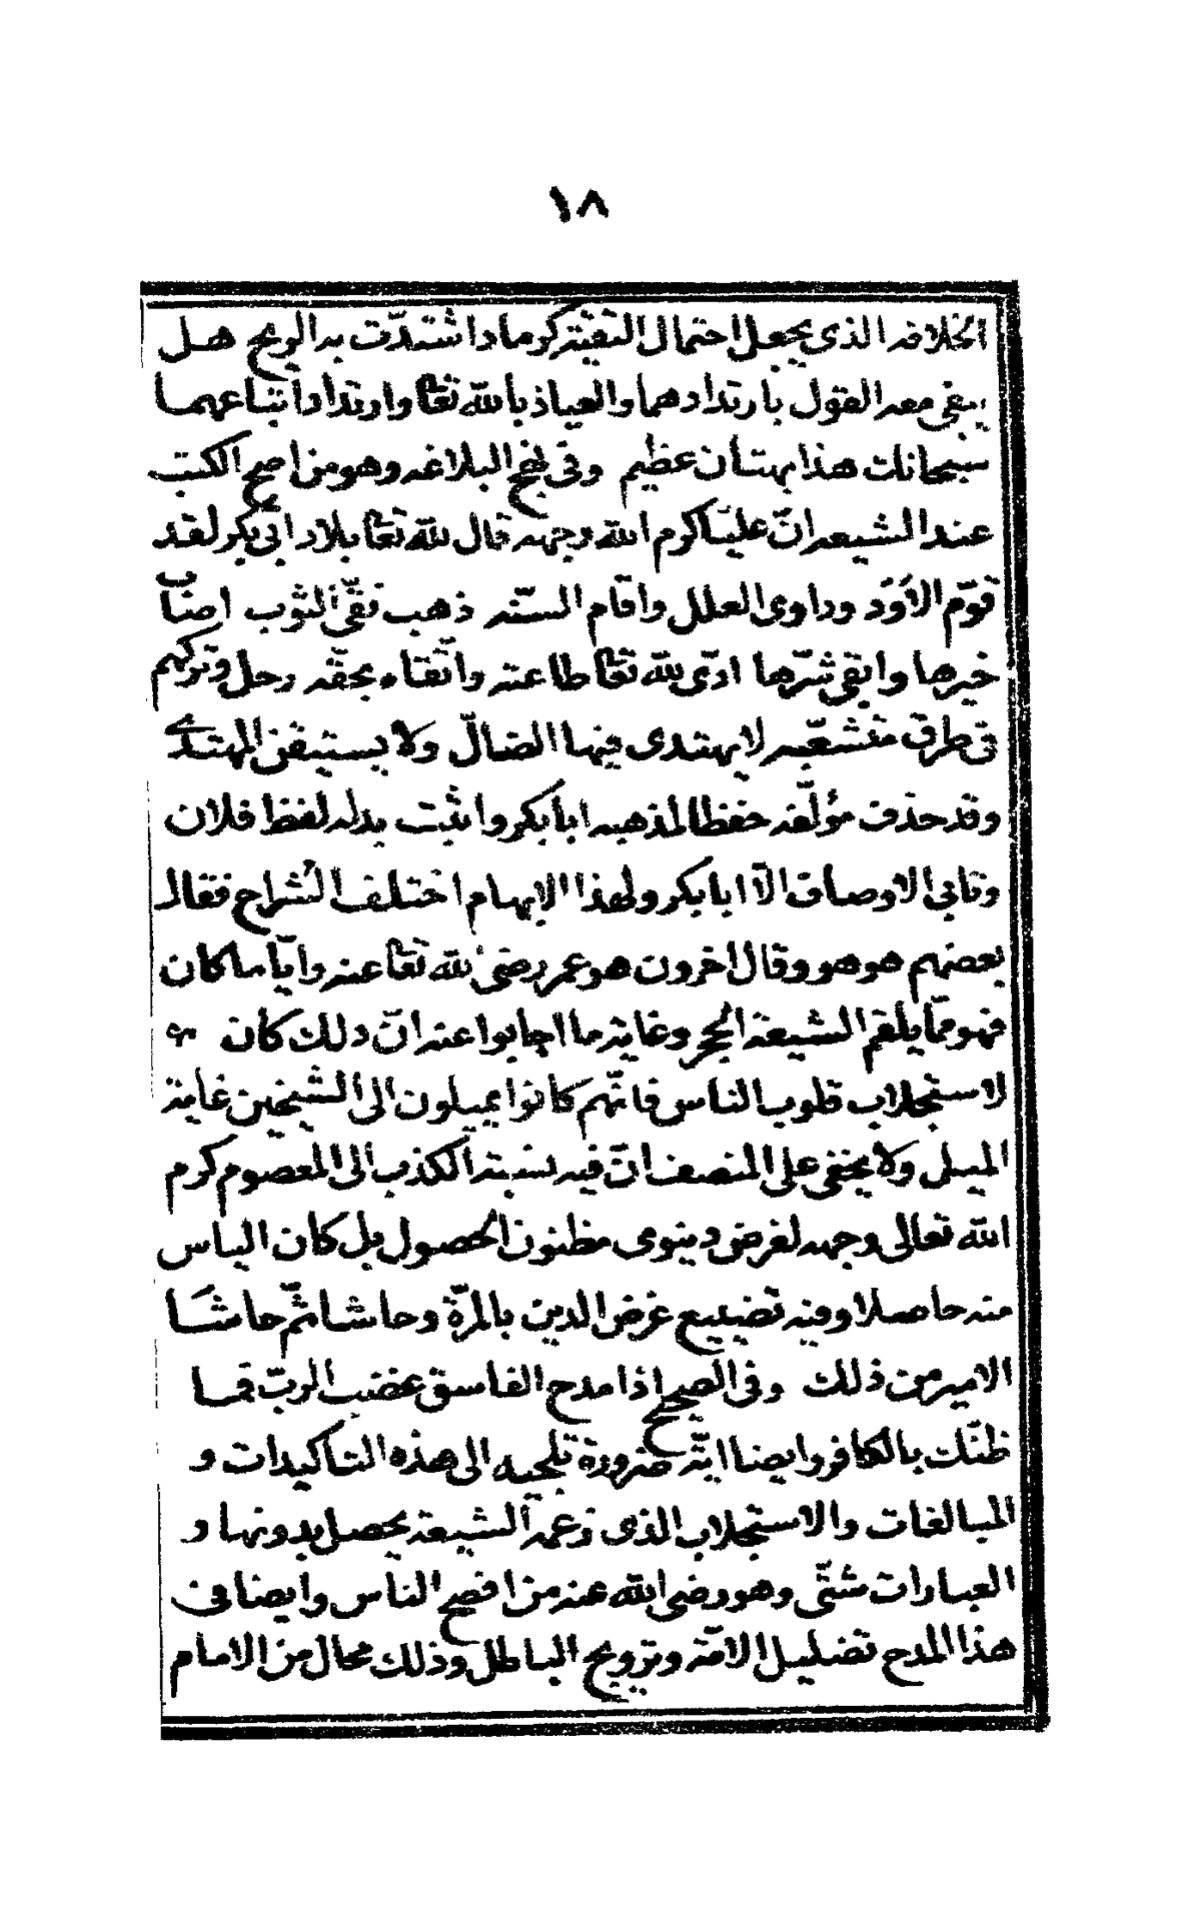 ١٨
الخلافه الذى يجعل احتمال التقيّة كرماد اشتدّت به الريح هل
يبقى معه القول بارتدادهما والعياذ بالله تعا وارتداد اتباعهما
سبحانك هذا بهتان عظيم وفى نهج البلاغه وهو من اصح الكتب
عند الشيعه انّ عليّا كرم الله وجهه قال لله تعا بلاد ابى بكر لقد
قوّم الاَوَد وداوى العلل واقام السنّه ذهب نقىّ الثوب اصاب
خيرها واتقى شرّها ادّى لله تعا طاعته واتّقاه بحقّه رحل وتركهم
فى طرق متشعّبه لا يهتدى فيها الضالّ ولا يستيقن المهتدى
وقد حذف مؤلّفه حفظا لمذهبه ابا بكر واثبت بدله لفظ فلان
وتابى الاوصاف الّا ابا بكر ولهذا الابهام اختلف الشراح فقال
بعضهم هو هو وقال اخرون هو عمر رضى الله تعا عنه وايّا ما كان
فهو ممّا يلقم الشيعة الحجر وغاية ما اجابوا عنه انّ ذلك كان
لاستجلاب قلوب الناس فانّهم كانوا يميلون الى الشيخين غاية
الميل ولا يخفى على المنصف انّ فيه نسبة الكذب الى المعصوم كرم
الله تعالى وجهه لغرض دينوى مظنون الحصول بل كان الياس
منه حاصلا وفيه تضييع غرض الدين بالمرّة وحاشا ثمّ حاشا
الامير من ذلك وفى الصحيح اذا مدح الفاسق غضب الربّ فما
ظنّك بالكافر وايضا ايّة ضرورة تلجيه الى هذه التاكيدات و
المبالغات والاستجلاب الذى زعمه الشيعة يحصل بدونها و
العبارات شتّى وهو رضى الله عنه من افصح الناس وايضا فى
هذا المدح تضليل الامّة وترويج الباطل وذلك محال من الامام